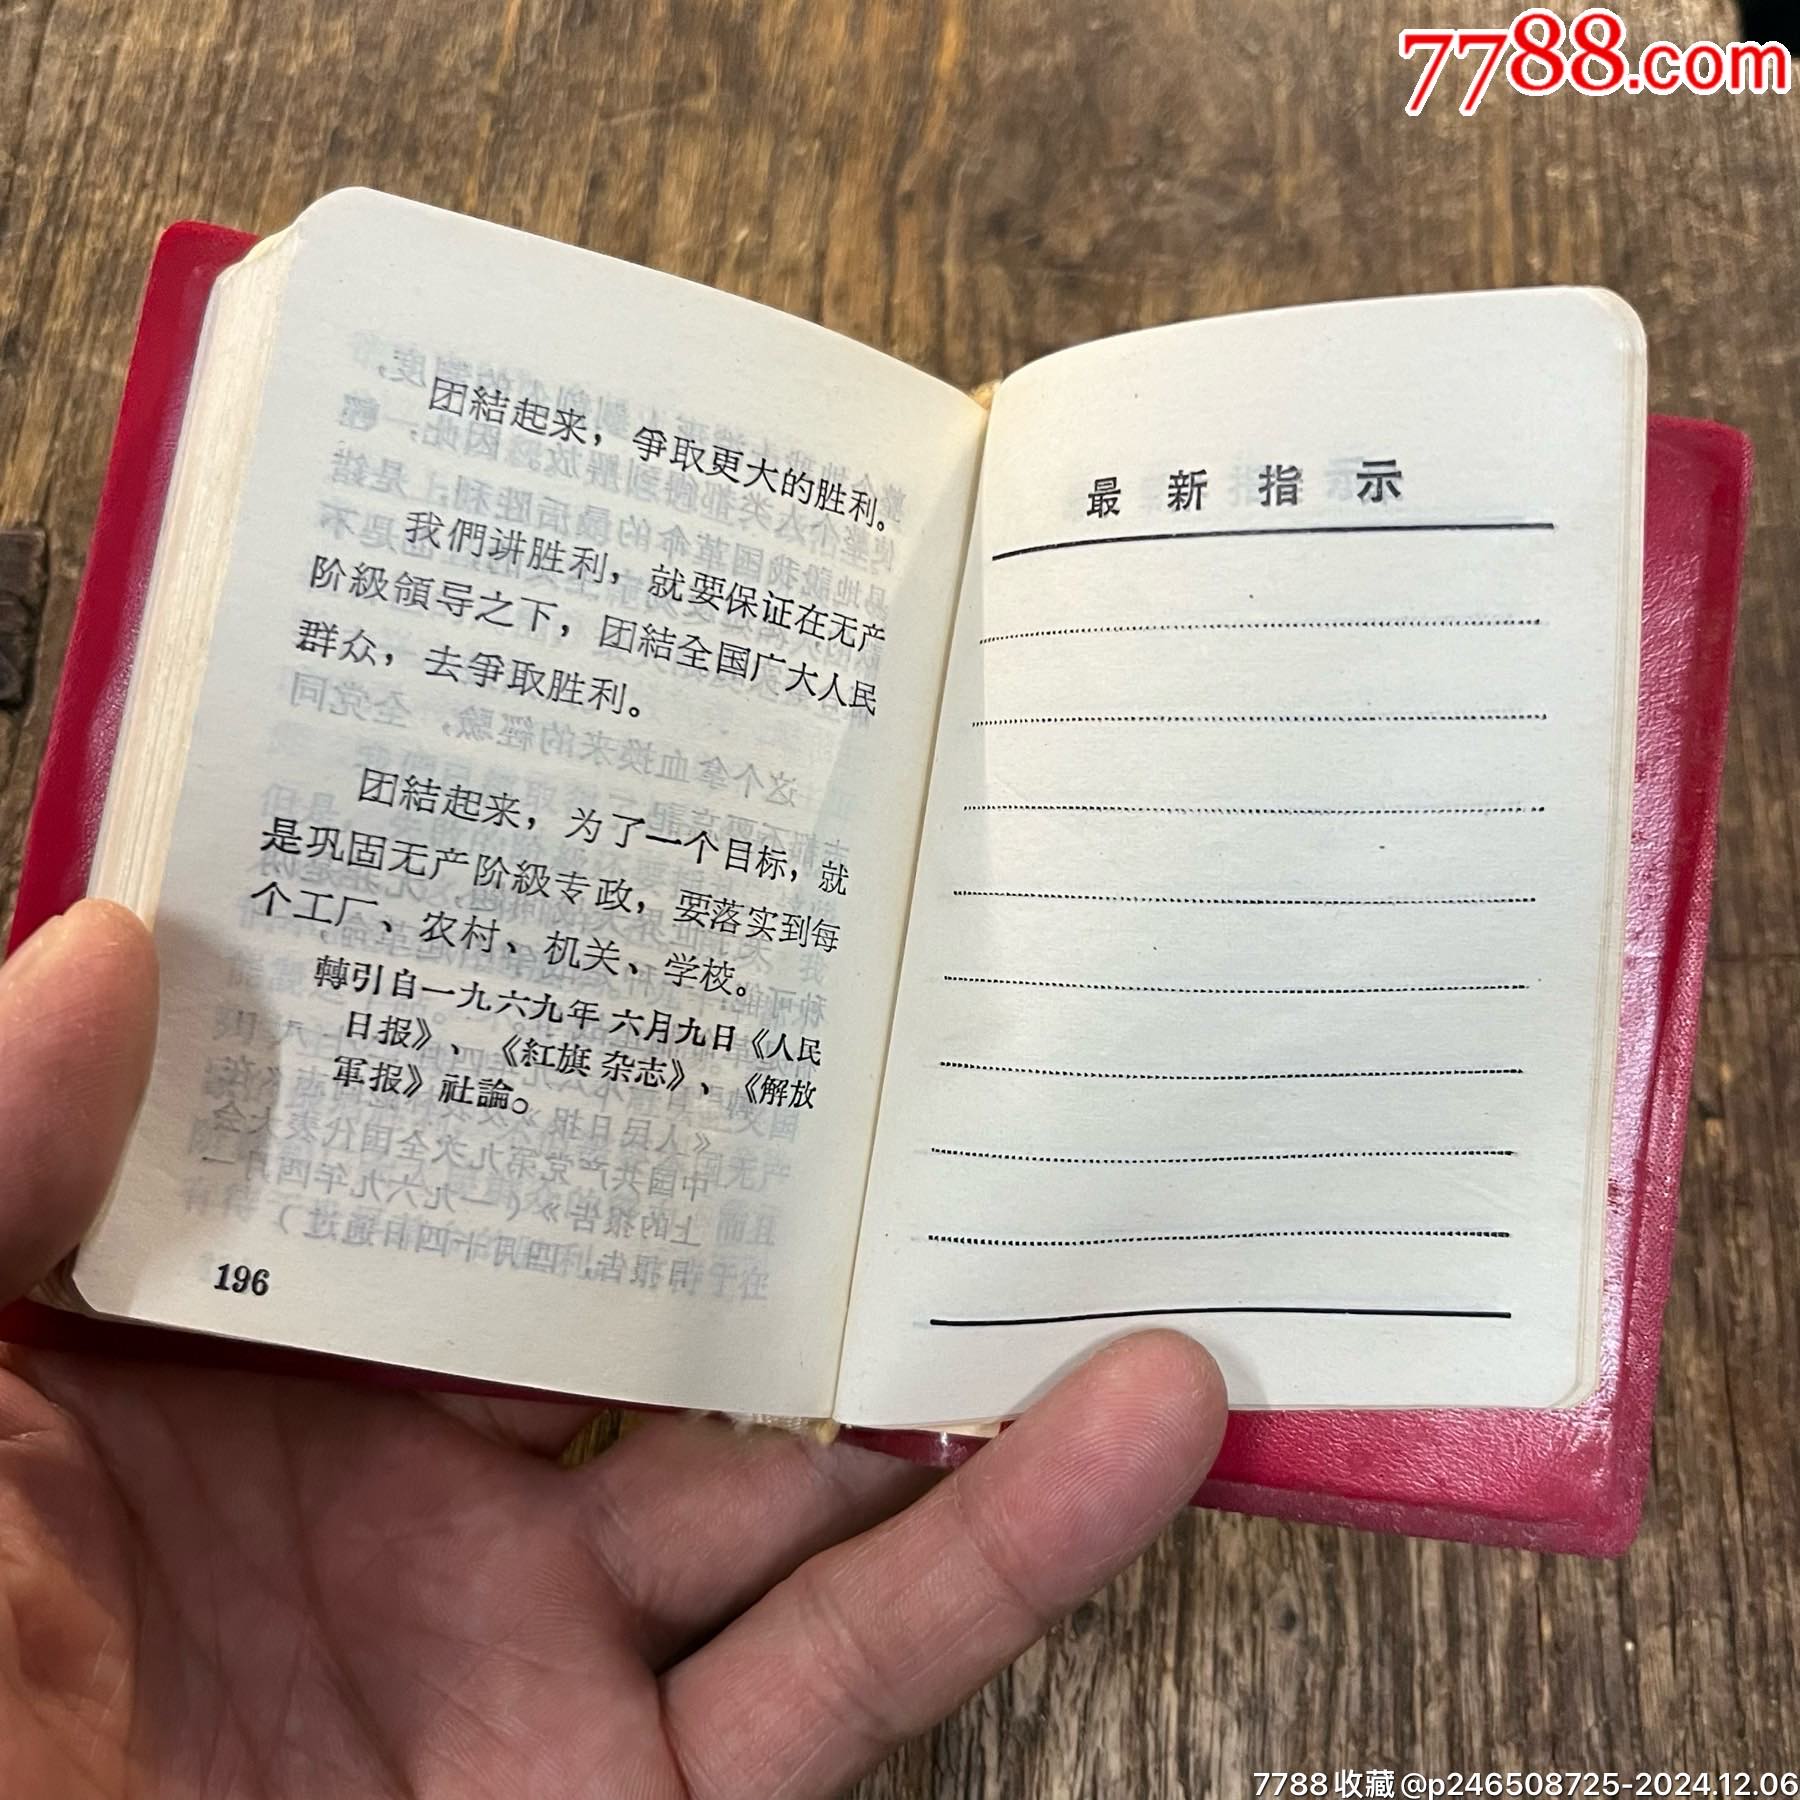 7788.com
团結起来，爭取更大的胜利。
我們讲胜利，就要保证在无产
阶級領导之下，团結全国广大人民
群众，去爭取胜利。
团結起来，为了一个目标，就
是巩固无产阶級专政，要落实到每
个工厂、农村、机关、学校。
轉引自一九六九年六月九日《人民
日报》、《紅旗杂志》、《解放
軍报》社論。
196
最新指示
7788收藏@p246508725-2024.12.06